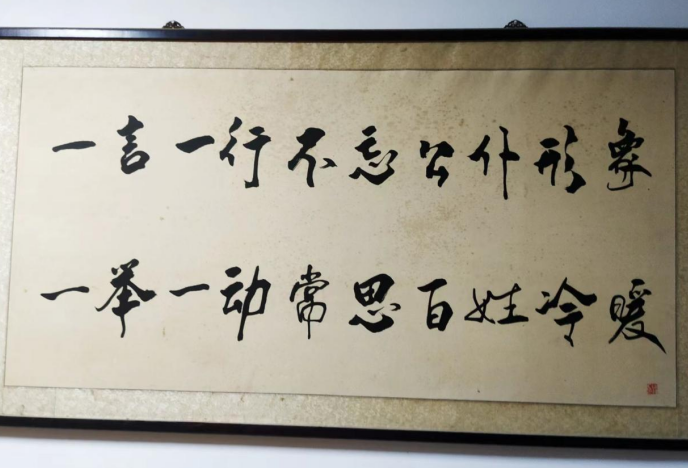 一言一行不忘公仆形象
一举一动常思百姓冷暖